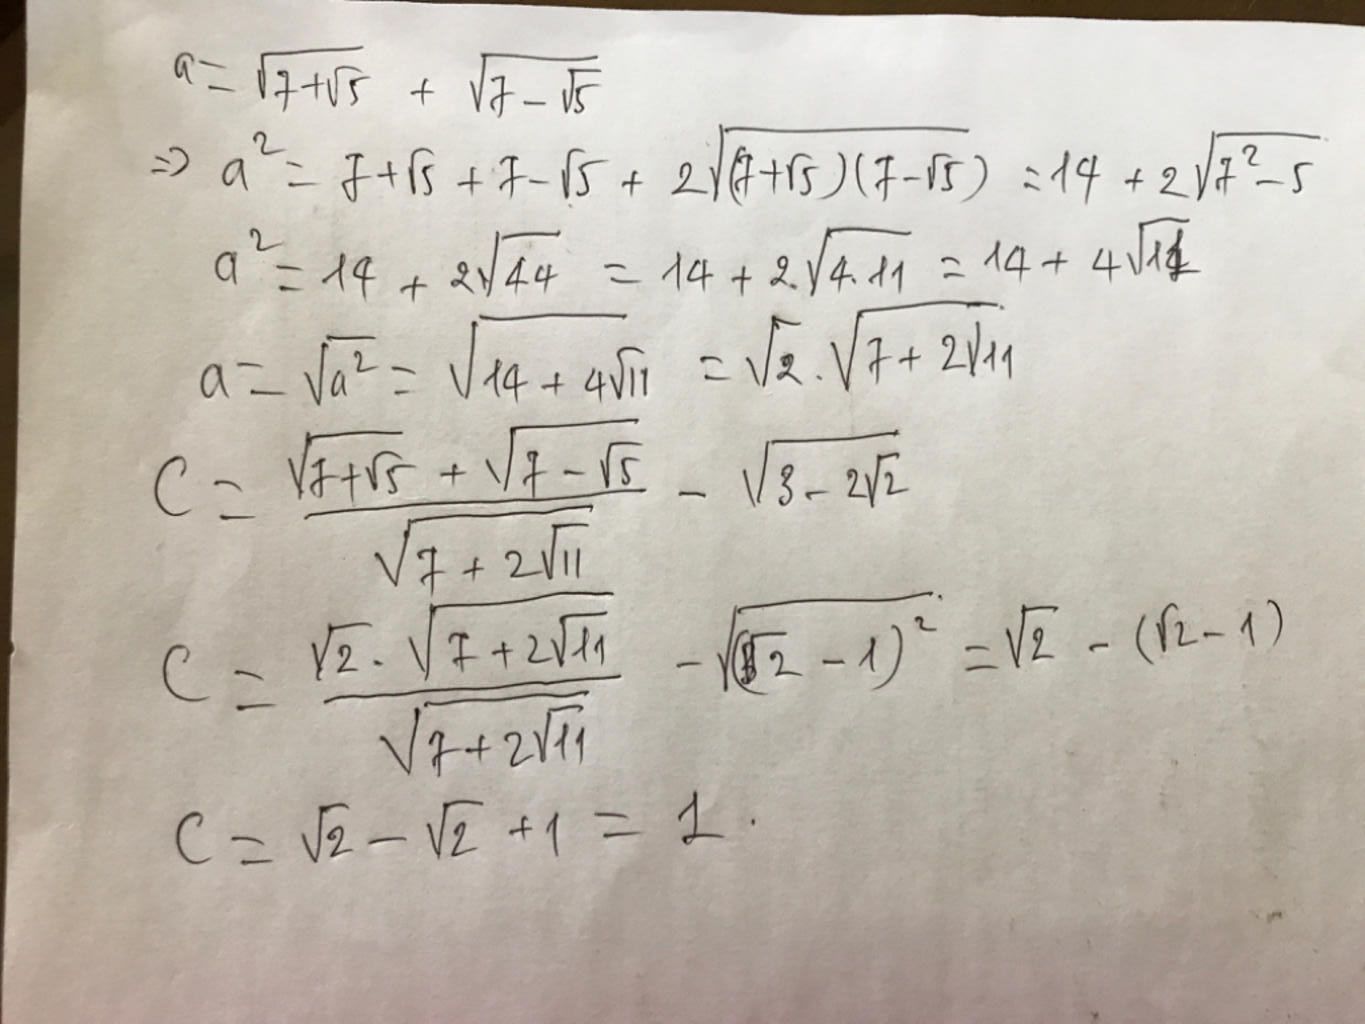 a = √(7+√5) + √(7-√5)
⇒ a² = 7+√5 + 7-√5 + 2√((7+√5)(7-√5)) = 14 + 2√(7²-5)
a² = 14 + 2√44 = 14 + 2.√(4.11) = 14 + 4√11
a = √a² = √(14 + 4√11) = √2 . √(7 + 2√11)
C = (√(7+√5) + √(7-√5))/√(7 + 2√11) - √(3-2√2)
C = (√2 . √(7+2√11))/√(7+2√11) - √((√2 - 1)²) = √2 - (√2-1)
C = √2 - √2 + 1 = 1.